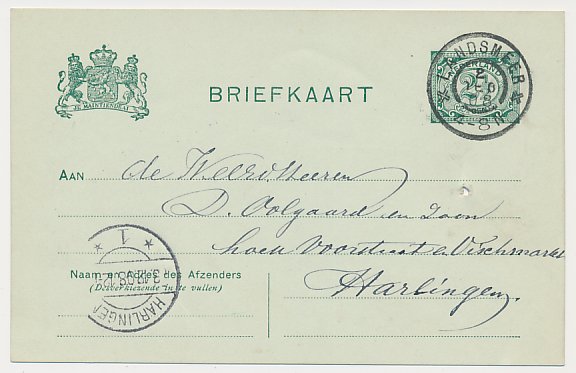 JE MAINTIENDRAI
BRIEFKAART
NEDERLAND
LANDSMEER
AAN de Weled. Heeren
D. Oolgaard en Zoon
hoek Voorstraat en Vischmarkt
Harlingen.
Naam en Adres des Afzenders
(Desverkiezende in te vullen)
1
HARLINGEN